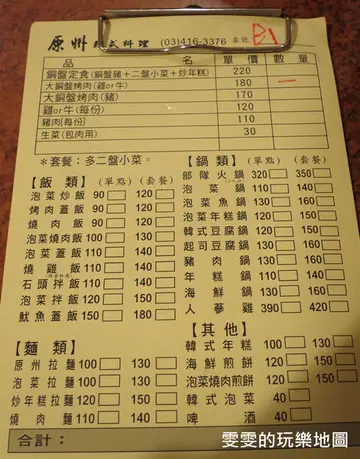 原州韓式料理 (03)416-3376 桌號 B1
品名 單價 數量
銅盤定食(銅盤豬+二盤小菜+炒年糕) 220
大銅盤烤肉(雞or牛) 180 一
大銅盤烤肉(豬) 170
雞or牛(每份) 120
豬肉(每份) 110
生菜(包肉用) 30
*套餐:多二盤小菜。
【飯類】(單點)(套餐)
泡菜炒飯 90 120
烤肉蓋飯 90 120
燒肉飯 90 120
泡菜燒肉飯 100 130
泡菜蓋飯 110 140
燒雞飯 110 140
石頭拌飯 110 140
泡菜拌飯 120 150
魷魚蓋飯 150 180
【麵類】
原州拉麵 100 130
泡菜拉麵 110 140
炒年糕拉麵 120 150
燒肉麵 110 140
【鍋類】(單點)(套餐)
部隊火鍋 320 350
泡菜鍋 110 140
泡菜魚鍋 130 160
泡菜年糕鍋 120 150
韓式豆腐鍋 120 150
起司豆腐鍋 130 160
豬肉鍋 130 160
年糕鍋 110 140
海鮮鍋 130 160
人蔘雞 390 420
【其他】
韓式年糕 100 130
海鮮煎餅 120 150
泡菜燒肉煎餅 120 150
韓式泡菜 40
啤酒 40
合計:
雯雯的玩樂地圖